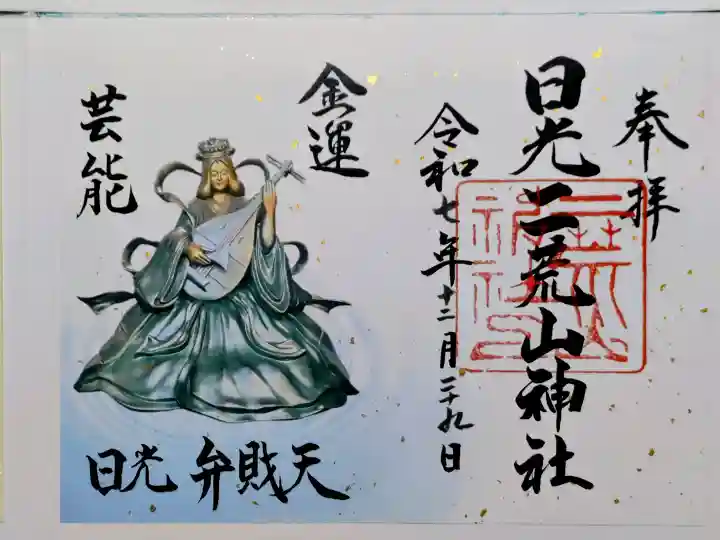 奉拝
日光二荒山神社
令和七年十二月二十九日
金運
芸能
日光 弁財天